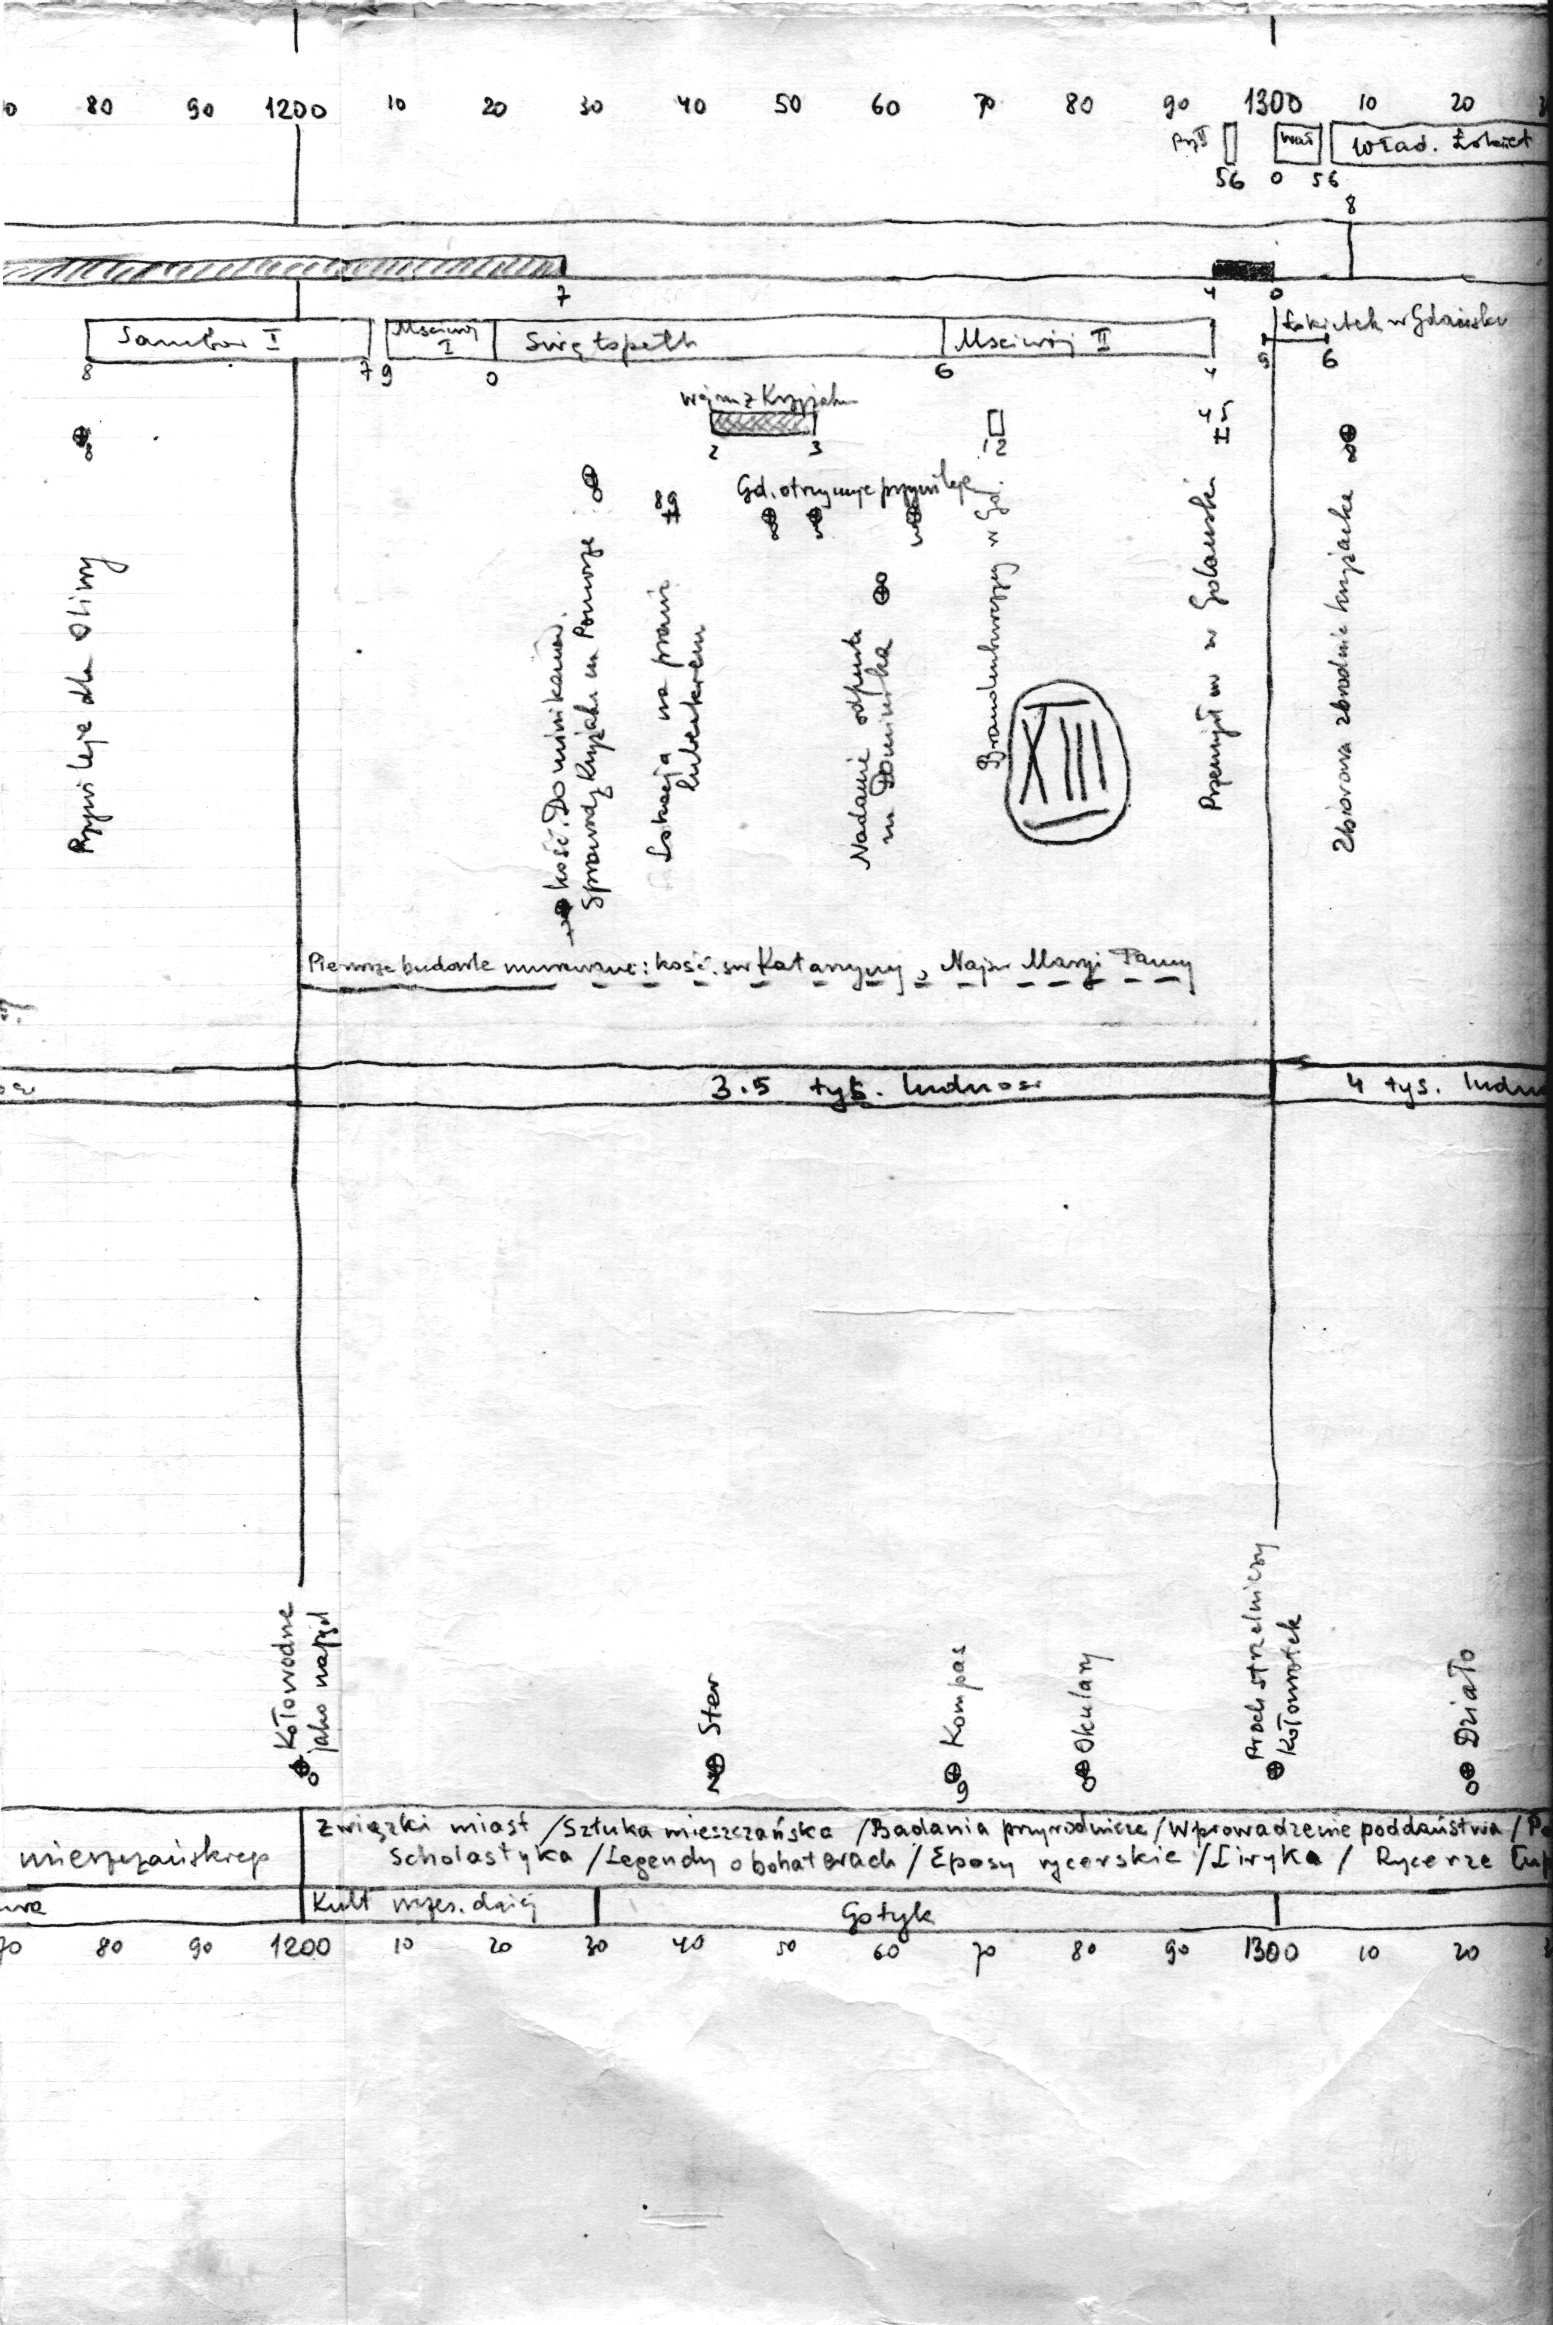 80 90 1200 10 20 30 40 50 60 70 80 90 1300 10 20
Wac Wład. Łokiet
56 0 56
8
7 4 0
Sambor I Mściwój I Świętopełk Mściwój II Łokietek w Gdańsku
8 7 9 0 6 4 9 6
wojna z Krzyżak
2 3 12 4 5
8
Przywileje dla Oliwy
0
7 kość. Dominikanów.
Sprowadz Krzyżak na Pomorze
89
Lokacja na prawie
lubeckiem
Gd. otrzymuje przywileje
Nadanie odpustu
na Dominika
0
Brandenburczycy w Gd.
XIII
Przemysł w Gdańsku
Zbiorowa zbrodnia krzyżacka
8
Pierwsze budowle murowane: kość. św Katarzyny, Najśw Maryi Panny
3.5 tyś. ludnosi 4 tys. ludn
0 Koło wodne
jako napęd
2 Ster
9 Kompas
0 Okulary
Proch strzelniczy
Kołowrotek
0 Działo
Związki miast / Sztuka mieszczańska / Badania przyrodnicze / Wprowadzenie poddaństwa /
mieszczańskiego Scholastyka / Legendy o bohaterach / Eposy rycerskie / Liryka / Rycerze łup
Kult rozes. dziej Gotyk
70 80 90 1200 10 20 30 40 50 60 70 80 90 1300 10 20